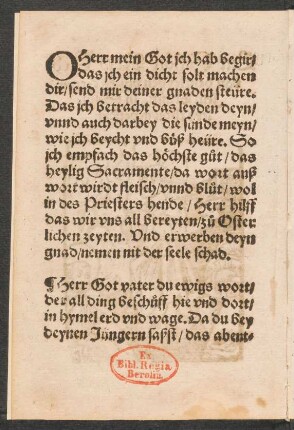 O Herr mein Got jch hab begir/
das jch ein dicht solt machen
dir/send mir deiner gnaden steüre.
Das jch betracht das leyden deyn/
vnnd auch darbey die sünde meyn/
wie jch beycht vnd büß heüre. So
jch empfach das höchste güt/das
heylig Sacramente/da wort auß
wort wirdt fleisch/vnnd blüt/wol
in des Priesters hende/Herr hilff
das wir vns all bereyten/zů Oster
lichen zeyten. Vnd erwerben deyn
gnad/nemen nit der seele schad.
¶Herr Got vater du ewigs wort/
der all ding beschüff hie vnd dort/
in hymel erd vnd wage. Da du bey
deynen Jüngern saßst/das abent-
Ex
Bibl. Regia
Berolin.